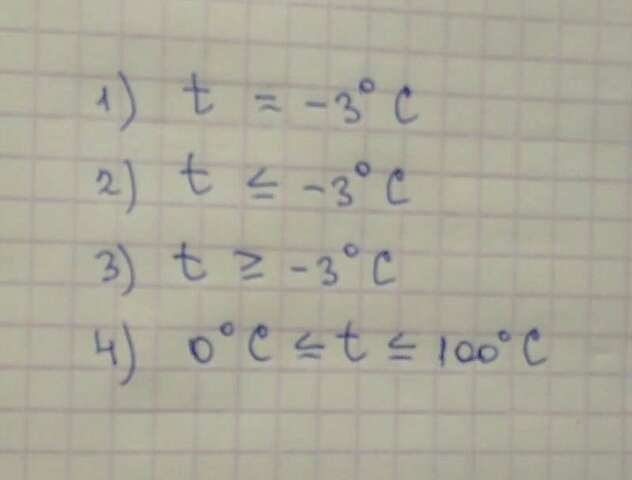 1) t = -3° C
2) t ≤ -3° C
3) t ≥ -3° C
4) 0° C ≤ t ≤ 100° C